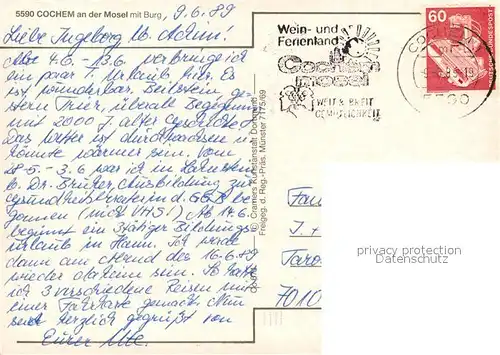 5590 COCHEM an der Mosel mit Burg, 9.6.89
Liebe Ingeborg u. Achim!
Vom 4.6. - 13.6 verbringe ich
ein paar T. Urlaub hier. Es
ist wunderbar. Beilstein, ge-
stern Trier, überall Begegnung
mit 2000 J. alter Geschichte.
Das Wetter ist durchwachsen
könnte wärmer sein. Vom
28.5 - 3.6 war ich in
b. Dr. Ausbildung zur
Gesundheitsberaterin d. GGB be-
gonnen (nicht VHS!) Ab 14.6
beginnt ein 3tägiger Bildungs-
urlaub in Hann. Ich werde
dann am Abend des 16.6.89
wieder daheim sein. So hatte
ich 3 verschiedene Reisen mit
einer Fahrkarte gemacht. Nun
seid herzlich gegrüßt von
Eurer Ute.
© Cramers Kunstanstalt Dortmund
Freigeg. d. Reg.-Präs. Münster 7175/69
Wein- und
Ferienland
Cochem
WEIT & BREIT
60
DEUTSCHE BUNDESPOST
COCHEM
5590
Fam
I. +
Taro
7010
privacy protection
www.ansichtskarten-center.de